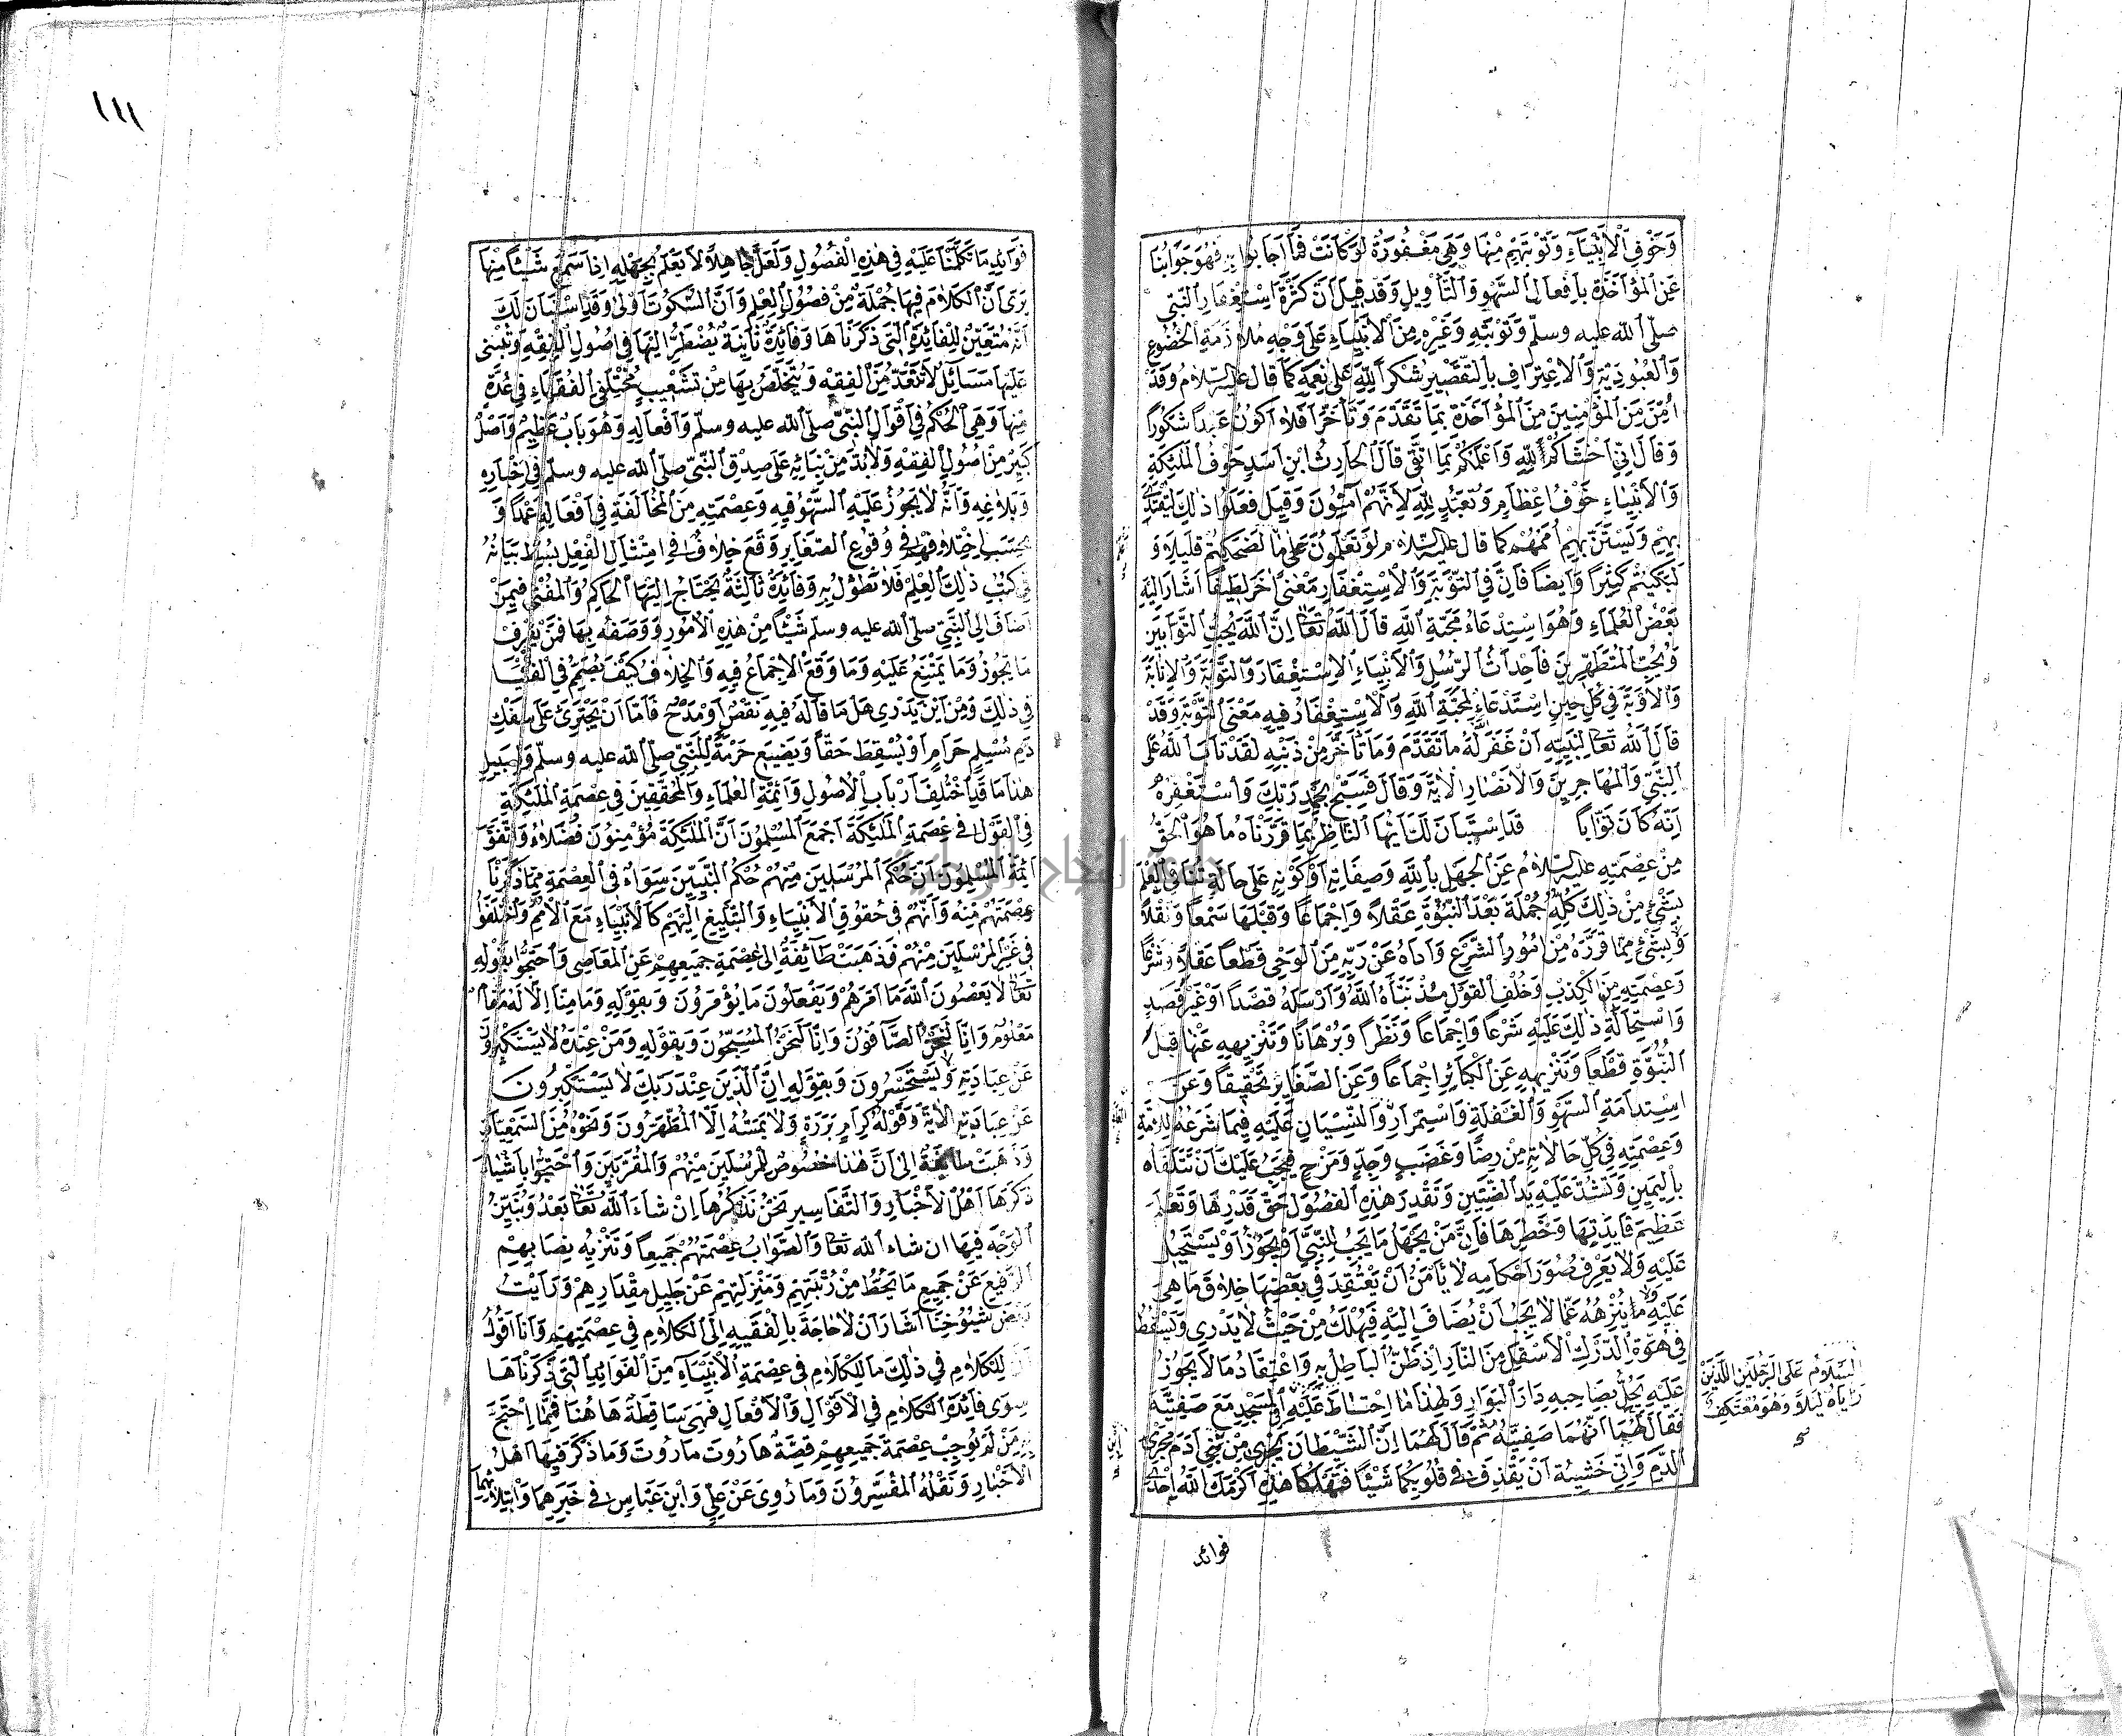 وَخَوْفِ الْأَنْبِيَاءِ وَتَوْبَتِهِمْ مِنْهَا وَهِيَ مَغْفُورَةٌ لَوْ كَانَتْ فَمَا أَجَابُوا بِهِ فَهُوَ جَوَابُنَا
عَنِ الْمُؤَاخَذَةِ بِأَفْعَالِ السَّهْوِ وَالتَّأْوِيلِ وَقَدْ قِيلَ أَنَّ كَثْرَةَ اسْتِغْفَارِ النَّبِيِّ
صلّى الله عليه وسلّم وَتَوْبَتِهِ وَغَيْرِهِ مِنَ الْأَنْبِيَاءِ عَلَى وَجْهِ مُلَازَمَةِ الْخُضُوعِ
وَالْعُبُودِيَّةِ وَالْاِعْتِرَافِ بِالتَّقْصِيرِ شُكْرًا لِلَّهِ عَلَى نِعَمِهِ كَمَا قَالَ عليه السّلام وَقَدْ
أُمِّنَ مِنَ الْمُؤَاخَذَةِ بِمَا تَقَدَّمَ وَتَأَخَّرَ أَفَلَا أَكُونُ عَبْدًا شَكُورًا
وَقَالَ إِنِّي أَخْشَاكُمْ لِلَّهِ وَأَعْلَمُكُمْ بِمَا أَتَّقِي قَالَ الْحَارِثُ ابْنُ أَسَدٍ خَوْفُ الْمَلٰئِكَةِ
وَالْأَنْبِيَاءِ خَوْفُ إِعْظَامٍ وَتَعَبُّدٍ لِلَّهِ لِأَنَّهُمْ آمِنُونَ وَقِيلَ فَعَلُوا ذٰلِكَ لِيَقْتَدِيَ
بِهِمْ وَيَسْتَنَّ بِهِمْ أُمَمُهُمْ كما قال عليه السّلام لَوْ تَعْلَمُونَ مَا أَعْلَمُ لَضَحِكْتُمْ قَلِيلًا وَ
لَبَكَيْتُمْ كَثِيرًا وَأَيْضًا فَإِنَّ فِي التَّوْبَةِ وَالْاِسْتِغْفَارِ مَعْنًى آخَرَ لَطِيفًا أَشَارَ إِلَيْهِ
بَعْضُ الْعُلَمَاءِ وَهُوَ اسْتِدْعَاءُ مَحَبَّةِ اللَّهِ قَالَ اللَّهُ تَعَا إِنَّ اللَّهَ يُحِبُّ التَّوَّابِينَ
وَيُحِبُّ الْمُتَطَهِّرِينَ فَإِحْدَاثُ الرُّسُلِ وَالْأَنْبِيَاءِ الْاِسْتِغْفَارَ وَالتَّوْبَةَ وَالْاِنَابَةَ
وَالْأَوْبَةَ فِي كُلِّ حِينٍ اسْتِدْعَاءٌ لِمَحَبَّةِ اللَّهِ وَالْاِسْتِغْفَارُ فِيهِ مَعْنَى التَّوْبَةِ وَقَدْ
قَالَ اللَّهُ تَعَا لِنَبِيِّهِ أَنْ غَفَرَ لَهُ مَا تَقَدَّمَ وَمَا تَأَخَّرَ مِنْ ذَنْبِهِ لَقَدْ تَابَ اللَّهُ عَلَى
النَّبِيِّ وَالْمُهَاجِرِينَ وَالْأَنْصَارِ الْآيَةَ وَقَالَ فَسَبِّحْ بِحَمْدِ رَبِّكَ وَاسْتَغْفِرْهُ
إِنَّهُ كَانَ تَوَّابًا قَدِ اسْتَبَانَ لَكَ أَيُّهَا النَّاظِرُ بِمَا قَرَّرْنَاهُ مَا هُوَ الْحَقُّ
مِنْ عِصْمَتِهِ عليه السّلام عَنِ الْجَهْلِ بِاللَّهِ وَصِفَاتِهِ أَوْ كَوْنِهِ عَلَى حَالَةٍ تُنَافِي الْعِلْمَ
بِشَيْءٍ مِنْ ذٰلِكَ كُلِّهِ جُمْلَةً بَعْدَ النُّبُوَّةِ عَقْلًا وَإِجْمَاعًا وَقَبْلَهَا سَمْعًا وَنَقْلًا
وَلَا بِشَيْءٍ مِمَّا قَرَّرَهُ مِنْ أُمُورِ الشَّرْعِ وَأَدَّاهُ عَنْ رَبِّهِ مِنَ الْوَحْيِ قَطْعًا عَقْلًا وَشَرْعًا
وَعِصْمَتِهِ مِنَ الْكِذْبِ وَخُلْفِ الْقَوْلِ مُنْذُ نَبَّأَهُ اللَّهُ وَأَرْسَلَهُ قَصْدًا أَوْ غَيْرَ قَصْدٍ
وَاسْتِحَالَةِ ذٰلِكَ عَلَيْهِ شَرْعًا وَإِجْمَاعًا وَنَظَرًا وَبُرْهَانًا وَتَنْزِيهِهِ عَنْهَا قَبْلَ
النُّبُوَّةِ قَطْعًا وَتَنْزِيهِهِ عَنِ الْكَبَائِرِ إِجْمَاعًا وَعَنِ الصَّغَائِرِ تَحْقِيقًا وَعَنِ
اسْتِدَامَةِ السَّهْوِ وَالْغَفْلَةِ وَاسْتِمْرَارِ وَالنِّسْيَانِ عَلَيْهِ فِيمَا شَرَعَهُ لِلْأُمَّةِ
وَعِصْمَتِهِ فِي كُلِّ حَالَاتِهِ مِنْ رِضًا وَغَضَبٍ وَجِدٍّ وَمَزْحٍ فَيَجِبُ عَلَيْكَ أَنْ تَتَلَقَّاهُ
بِالْيَمِينِ وَتَشُدَّ عَلَيْهِ يَدَ الضَّنِينِ وَتَقْدِرَ هٰذِهِ الْفُصُولَ حَقَّ قَدْرِهَا وَتَعْلَمَ
عَظِيمَ فَائِدَتِهَا وَخَطَرِهَا فَإِنَّ مَنْ يَجْهَلُ مَا يَجِبُ لِلنَّبِيِّ أَوْ يَجُوزُ أَوْ يَسْتَحِيلُ
عَلَيْهِ وَلَا يَعْرِفُ صُوَرَ أَحْكَامِهِ لَا يَأْمَنُ أَنْ يَعْتَقِدَ فِي بَعْضِهَا خِلَافَ مَا هِيَ
عَلَيْهِ وَلَا يُنَزِّهُهُ عَمَّا لَا يَجِبُ أَنْ يُضَافَ إِلَيْهِ فَيَهْلِكُ مِنْ حَيْثُ لَا يَدْرِي وَيَسْقُطُ
فِي هُوَّةِ الدَّرَكِ الْأَسْفَلِ مِنَ النَّارِ إِذْ ظَنُّ الْبَاطِلِ بِهِ وَاعْتِقَادُ مَا لَا يَجُوزُ
عَلَيْهِ يُحِلُّ بِصَاحِبِهِ دَارَ الْبَوَارِ وَلِهٰذَا مَا احْتَاطَ عَلَيْهِ فِي الْمَسْجِدِ مَعَ صَفِيَّةَ
فَقَالَ لَهُمَا إِنَّهَا صَفِيَّةُ ثُمَّ قَالَ لَهُمَا إِنَّ الشَّيْطَانَ يَجْرِي مِنْ بَنِي آدَمَ مَجْرَى
الدَّمِ وَإِنِّي خَشِيتُ أَنْ يَقْذِفَ فِي قُلُوبِكُمَا شَيْئًا فَتَهْلِكَا هٰذِهِ أَكْرَمَكَ اللَّهُ إِحْدَى
السَّلَامُ عَلَى الرَّجُلَيْنِ اللَّذَيْنِ
رَأَيَاهُ لَيْلًا وَهُوَ مُعْتَكِفٌ
فوائد
١١١
فَوَائِدِ مَا تَكَلَّمْنَا عَلَيْهِ فِي هٰذِهِ الْفُصُولِ وَلَعَلَّ جَاهِلًا لَا يَعْلَمُ بِجَهْلِهِ إِذَا سَمِعَ شَيْئًا مِنْهَا
يَرَى أَنَّ الْكَلَامَ فِيهَا جُمْلَةً مِنْ فُضُولِ الْعِلْمِ وَأَنَّ السُّكُوتَ أَوْلَى وَقَدِ اسْتَبَانَ لَكَ
أَنَّهُ مُتَعَيِّنٌ لِلْفَائِدَةِ الَّتِي ذَكَرْنَاهَا وَفَائِدَةٌ ثَانِيَةٌ يُضْطَرُّ إِلَيْهَا فِي أُصُولِ الْفِقْهِ وَتُبْنَى
عَلَيْهَا مَسَائِلُ لَا تَنْعَدُّ مِنَ الْفِقْهِ وَيُتَخَلَّصُ بِهَا مِنْ تَشْعِيبِ مُخْتَلِفِي الْفُقَهَاءِ فِي عِدَّةٍ
مِنْهَا وَهِيَ الْحُكْمُ فِي أَقْوَالِ النَّبِيِّ صلّى الله عليه وسلّم وَأَفْعَالِهِ وَهُوَ بَابٌ عَظِيمٌ وَأَصْلٌ
كَبِيرٌ مِنْ أُصُولِ الْفِقْهِ وَلَا بُدَّ مِنْ بِنَائِهِ عَلَى صِدْقِ النَّبِيِّ صلّى الله عليه وسلّم فِي إِخْبَارِهِ
وَبَلَاغِهِ وَأَنَّهُ لَا يَجُوزُ عَلَيْهِ السَّهْوُ فِيهِ وَعِصْمَتِهِ مِنَ الْمُخَالَفَةِ فِي أَفْعَالِهِ عَمْدًا وَ
بِحَسَبِ اخْتِلَافِهِمْ فِي وُقُوعِ الصَّغَائِرِ وَقَعَ خِلَافٌ فِي امْتِثَالِ الْفِعْلِ بُسِطَ بَيَانُهُ
فِي كُتُبِ ذٰلِكَ الْعِلْمِ فَلَا نُطَوِّلُ بِهِ وَفَائِدَةٌ ثَالِثَةٌ يَحْتَاجُ إِلَيْهَا الْحَاكِمُ وَالْمُفْتِي فِيمَنْ
أَضَافَ إِلَى النَّبِيِّ صلّى الله عليه وسلّم شَيْئًا مِنْ هٰذِهِ الْأُمُورِ وَوَصَفَهُ بِهَا فَمَنْ لَمْ يَعْرِفْ
مَا يَجُوزُ وَمَا يَمْتَنِعُ عَلَيْهِ وَمَا وَقَعَ الْاِجْمَاعُ فِيهِ وَالْخِلَافُ كَيْفَ يُصَمِّمُ فِي الْفُتْيَا
فِي ذٰلِكَ وَمِنْ أَيْنَ يَدْرِي هَلْ مَا قَالَهُ فِيهِ نَقْصٌ أَوْ مَدْحٌ فَإِمَّا أَنْ يَجْتَرِئَ عَلَى سَفْكِ
دَمِ مُسْلِمٍ حَرَامٍ أَوْ يُسْقِطَ حَقًّا وَيُضِيعَ حُرْمَةً لِلنَّبِيِّ صلّى الله عليه وسلّم وَبِسَبِيلِ
هٰذَا مَا قَدِ اخْتَلَفَ أَرْبَابُ الْأُصُولِ وَأَئِمَّةُ الْعُلَمَاءِ وَالْمُحَقِّقِينَ فِي عِصْمَةِ الْمَلٰئِكَةِ
فِي الْقَوْلِ فِي عِصْمَةِ الْمَلٰئِكَةِ أَجْمَعَ الْمُسْلِمُونَ أَنَّ الْمَلٰئِكَةَ مُؤْمِنُونَ فُضَلَاءُ وَاتَّفَقَ
أَئِمَّةُ الْمُسْلِمِينَ أَنَّ حُكْمَ الْمُرْسَلِينَ مِنْهُمْ حُكْمُ النَّبِيِّينَ سَوَاءٌ فِي الْعِصْمَةِ مِمَّا ذَكَرْنَا
عِصْمَتَهُمْ مِنْهُ وَأَنَّهُمْ فِي حُقُوقِ الْأَنْبِيَاءِ وَالتَّبْلِيغِ إِلَيْهِمْ كَالْأَنْبِيَاءِ مَعَ الْأُمَمِ وَاخْتَلَفُوا
فِي غَيْرِ الْمُرْسَلِينَ مِنْهُمْ فَذَهَبَتْ طَائِفَةٌ إِلَى عِصْمَةِ جَمِيعِهِمْ عَنِ الْمَعَاصِي وَاحْتَجُّوا بِقَوْلِهِ
تَعَا لَا يَعْصُونَ اللَّهَ مَا أَمَرَهُمْ وَيَفْعَلُونَ مَا يُؤْمَرُونَ وَبِقَوْلِهِ وَمَا مِنَّا إِلَّا لَهُ مَقَامٌ
مَعْلُومٌ وَإِنَّا لَنَحْنُ الصَّافُّونَ وَإِنَّا لَنَحْنُ الْمُسَبِّحُونَ وَبِقَوْلِهِ وَمَنْ عِنْدَهُ لَا يَسْتَكْبِرُونَ
عَنْ عِبَادَتِهِ وَلَا يَسْتَحْسِرُونَ وَبِقَوْلِهِ إِنَّ الَّذِينَ عِنْدَ رَبِّكَ لَا يَسْتَكْبِرُونَ
عَنْ عِبَادَتِهِ الْآيَةَ وَقَوْلِهِ كِرَامٍ بَرَرَةٍ وَلَا يَمَسُّهُ إِلَّا الْمُطَهَّرُونَ وَنَحْوُهُ مِنَ السَّمْعِيَّاتِ
وَذَهَبَتْ طَائِفَةٌ إِلَى أَنَّ هٰذَا خُصُوصٌ لِلْمُرْسَلِينَ مِنْهُمْ وَالْمُقَرَّبِينَ وَاحْتَجُّوا بِأَشْيَاءَ
ذَكَرَهَا أَهْلُ الْأَخْبَارِ وَالتَّفَاسِيرِ نَحْنُ نَذْكُرُهَا إِنْ شَاءَ اللَّهُ تَعَا بَعْدُ وَنُبَيِّنُ
الْوَجْهَ فِيهَا ان شاء الله تعا وَالصَّوَابُ عِصْمَتُهُمْ جَمِيعًا وَتَنْزِيهُ نِصَابِهِمْ
الرَّفِيعِ عَنْ جَمِيعِ مَا يَحُطُّ مِنْ رُتْبَتِهِمْ وَمَنْزِلَتِهِمْ عَنْ جَلِيلِ مِقْدَارِهِمْ وَرَأَيْتُ
بَعْضَ شُيُوخِنَا أَشَارَ أَنْ لَا حَاجَةَ بِالْفَقِيهِ إِلَى الْكَلَامِ فِي عِصْمَتِهِمْ وَأَنَا أَقُولُ
أَنَّ لِلْكَلَامِ فِي ذٰلِكَ مَا لِلْكَلَامِ فِي عِصْمَةِ الْأَنْبِيَاءِ مِنَ الْفَوَائِدِ الَّتِي ذَكَرْنَاهَا
سِوَى فَائِدَةِ الْكَلَامِ فِي الْأَقْوَالِ وَالْأَفْعَالِ فَهِيَ سَاقِطَةٌ هَاهُنَا فَمِمَّا احْتَجَّ
بِهِ مَنْ لَمْ يُوجِبْ عِصْمَةَ جَمِيعِهِمْ قِصَّةُ هَارُوتَ مَارُوتَ وَمَا ذَكَرَ فِيهَا أَهْلُ
الْأَخْبَارِ وَنَقَلَهُ الْمُفَسِّرُونَ وَمَا رُوِيَ عَنْ عَلِيٍّ وَابْنِ عَبَّاسٍ فِي خَبَرِهِمَا وَابْتِلَائِهِمَا